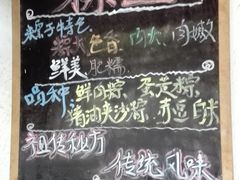 粽子特色
粽叶色香 火 肉嫩
鲜美肥糯
品种 鲜肉粽 蛋黄粽
猪油夹沙粽 赤豆 白米
祖传秘方
传统风味